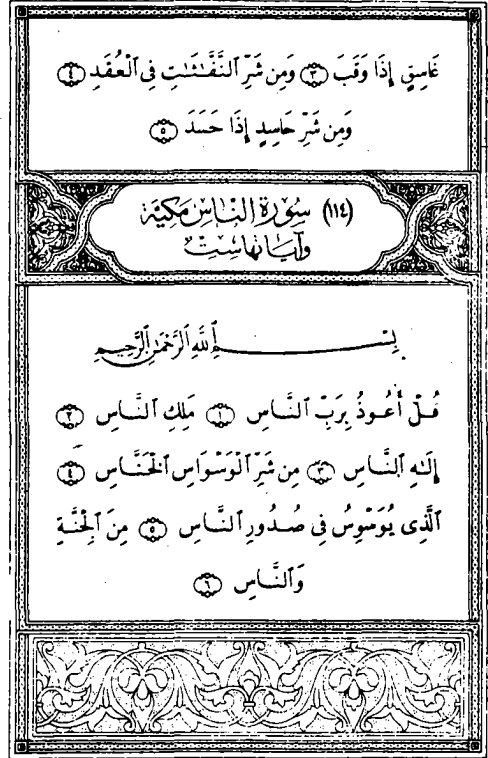 غَاسِقٍ إِذَا وَقَبَ ٣ وَمِن شَرِّ ٱلنَّفَّـٰثَـٰتِ فِى ٱلْعُقَدِ ٤
وَمِن شَرِّ حَاسِدٍ إِذَا حَسَدَ ٥
(١١٤) سُورَة النَّاسِ مَكيَّة
وَآيَاتهَا سِتٌّ
بِسْمِ ٱللَّهِ ٱلرَّحْمَـٰنِ ٱلرَّحِيمِ
قُلْ أَعُوذُ بِرَبِّ ٱلنَّاسِ ١ مَلِكِ ٱلنَّاسِ ٢
إِلَـٰهِ ٱلنَّاسِ ٣ مِن شَرِّ ٱلْوَسْوَاسِ ٱلْخَنَّاسِ ٤
ٱلَّذِى يُوَسْوِسُ فِى صُدُورِ ٱلنَّاسِ ٥ مِنَ ٱلْجِنَّةِ
وَٱلنَّاسِ ٦